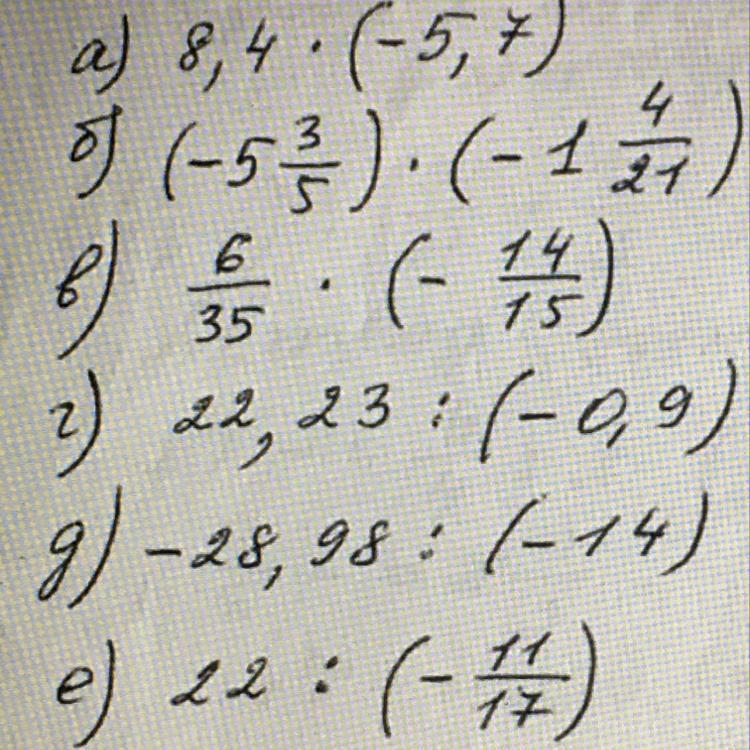 а) 8,4 · (-5,7)
б) (-5 3/5) · (-1 4/21)
в) 6/35 · (- 14/15)
г) 22,23 : (-0,9)
д) -28,98 : (-14)
е) 22 : (- 11/17)